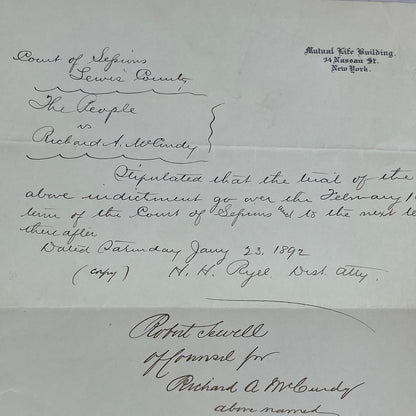 Mutual Life Building.
34 Nassau St.
New York.
Court of Sessions
Lewis County,
The People
vs
Richard A. McCurdy
Stipulated that the trial of the
above indictment go over the February
term of the Court of Sessions and to the next
thereafter
Dated Saturday Jany 23, 1892
(copy) H. H. Ryel Dist. Atty.
Robert Sewell
of Counsel for
Richard A McCurdy
above named